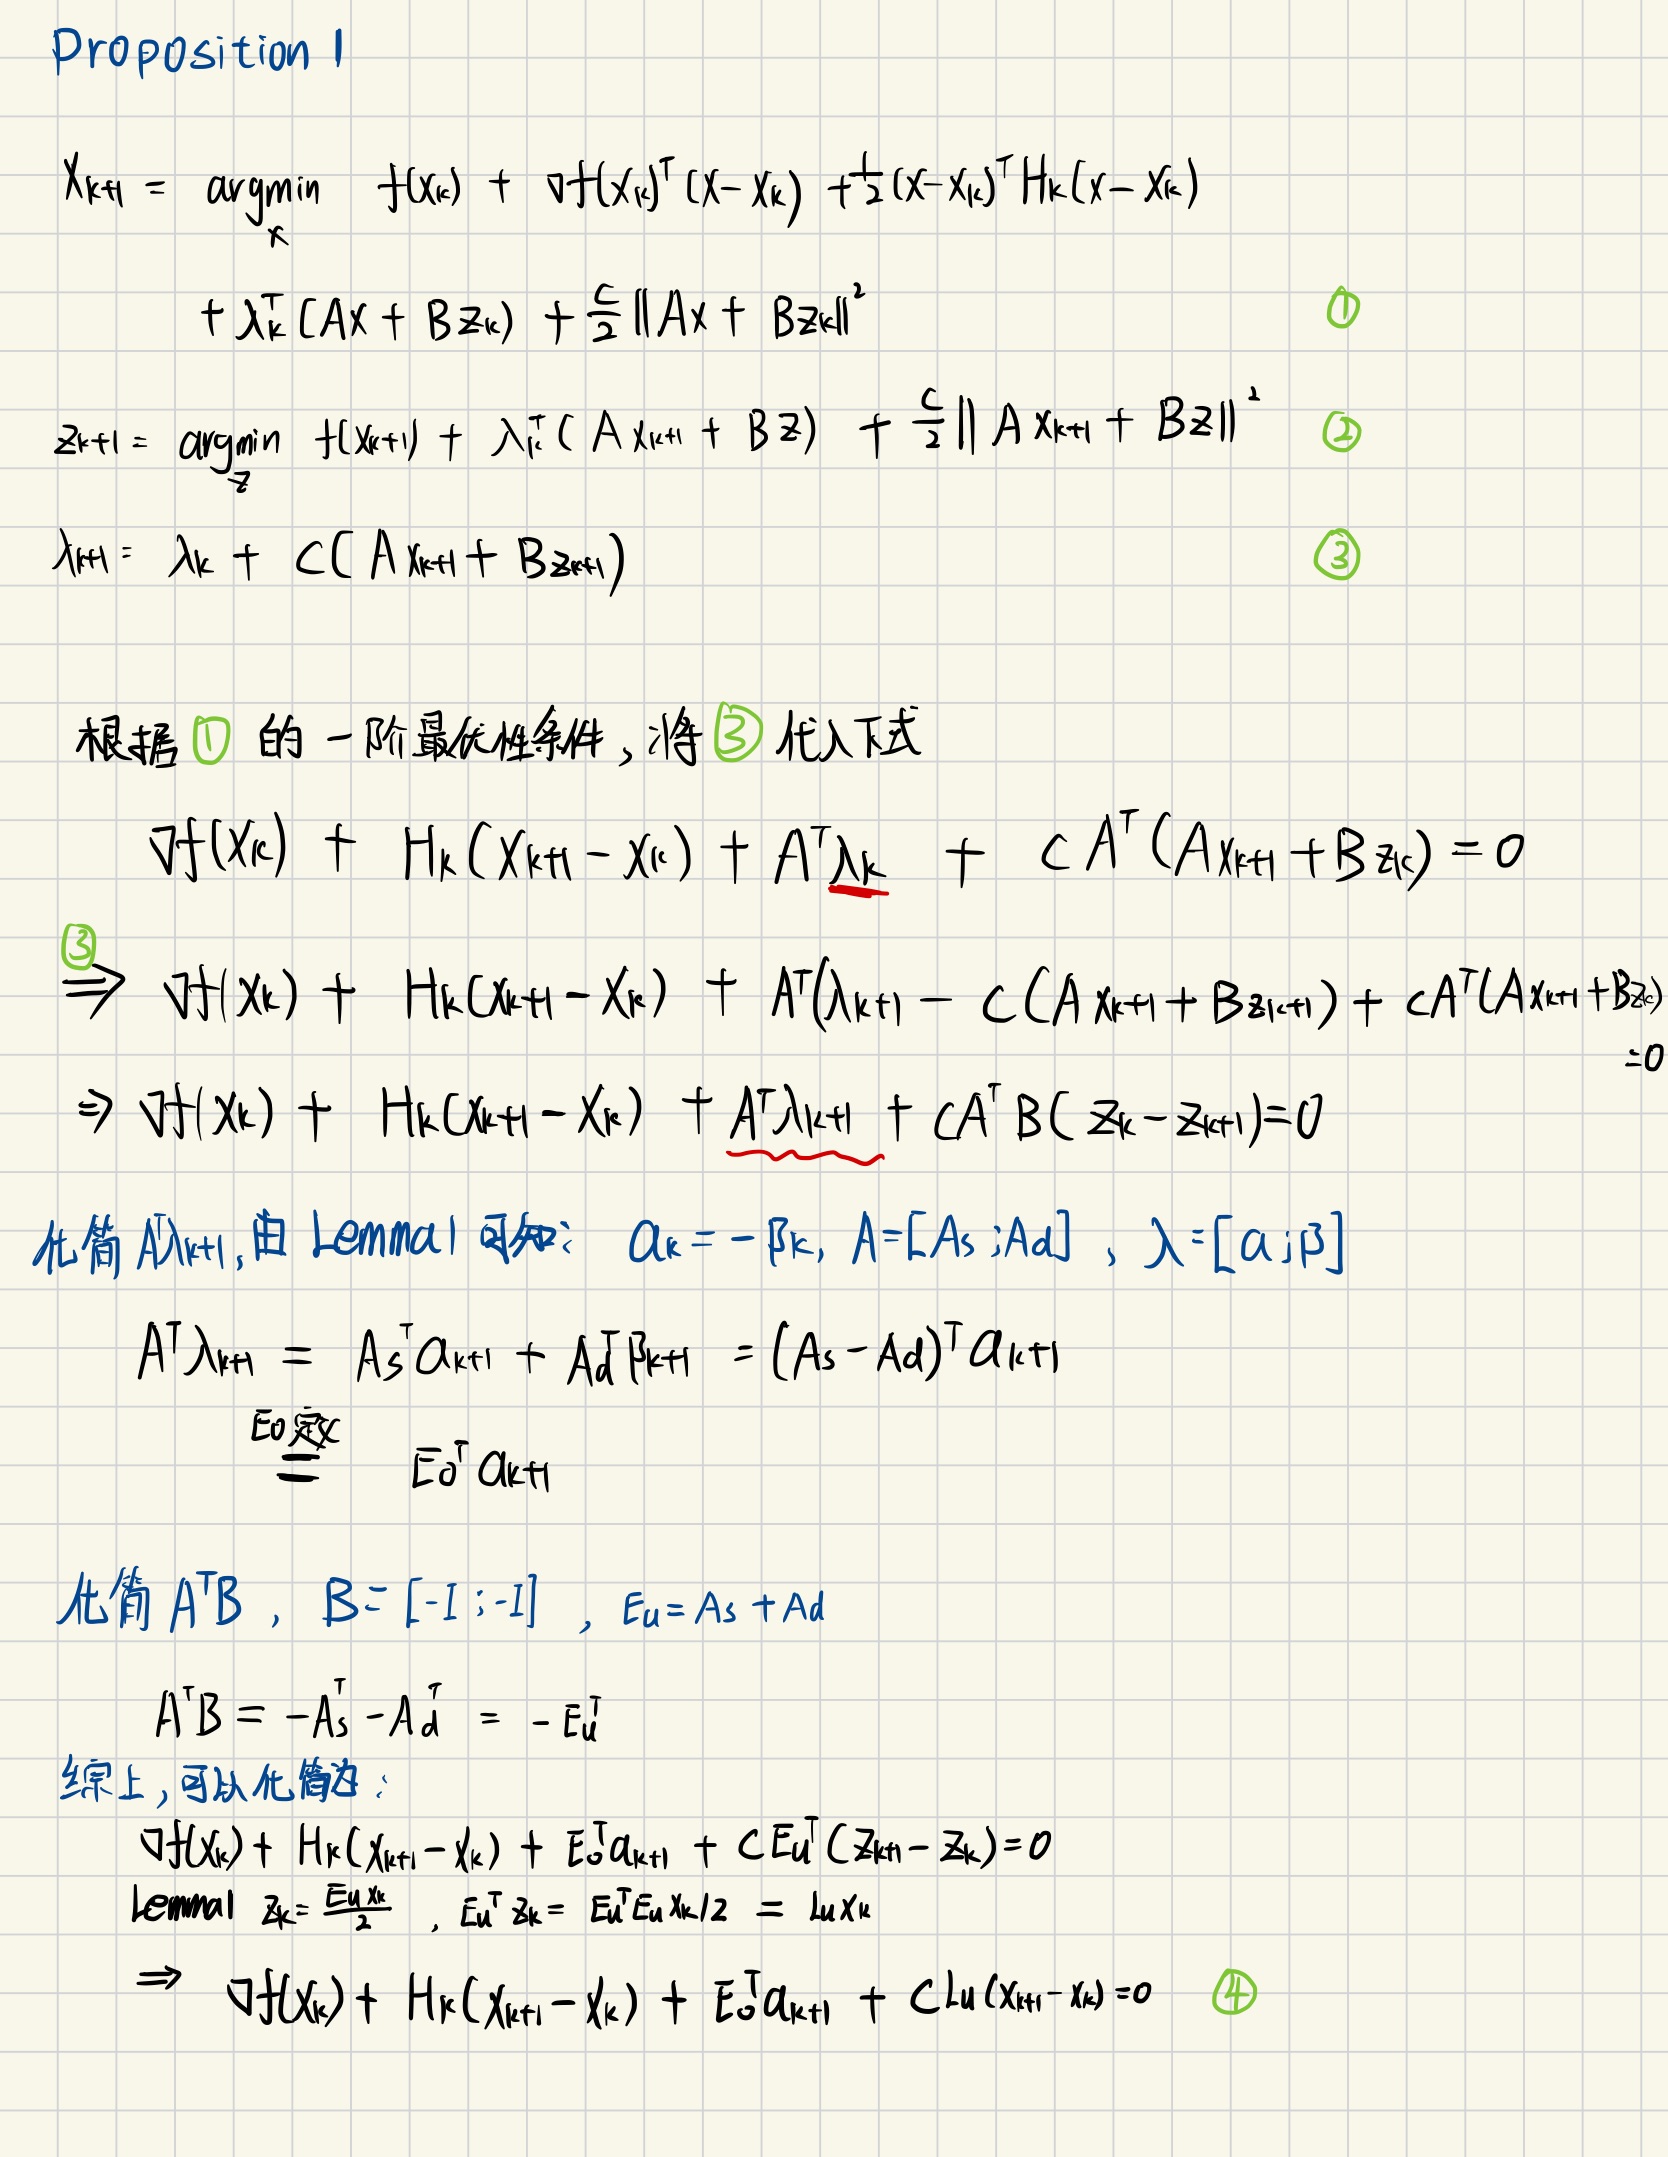 Proposition 1
x_{k+1} = argmin_x f(x_k) + ∇f(x_k)^T (x - x_k) + 1/2 (x - x_k)^T H_k (x - x_k)
+ λ_k^T (Ax + Bz_k) + c/2 ||Ax + Bz_k||^2 ①
z_{k+1} = argmin_z f(x_{k+1}) + λ_k^T (Ax_{k+1} + Bz) + c/2 ||Ax_{k+1} + Bz||^2 ②
λ_{k+1} = λ_k + c(Ax_{k+1} + Bz_{k+1}) ③
根据①的一阶最优性条件,将③代入下式
∇f(x_k) + H_k(x_{k+1} - x_k) + A^T λ_k + cA^T(Ax_{k+1} + Bz_k) = 0
③
⇒ ∇f(x_k) + H_k(x_{k+1} - x_k) + A^T(λ_{k+1} - c(Ax_{k+1} + Bz_{k+1}) + cA^T(Ax_{k+1} + Bz_k)
=0
⇒ ∇f(x_k) + H_k(x_{k+1} - x_k) + A^T λ_{k+1} + cA^T B(z_k - z_{k+1}) = 0
化简 A^T λ_{k+1}, 由 Lemma1 可知: α_k = -β_k, A=[As ; Ad] , λ=[α ; β]
A^T λ_{k+1} = As^T α_{k+1} + Ad^T β_{k+1} = (As - Ad)^T α_{k+1}
Eo定义
= Eo^T α_{k+1}
化简 A^T B , B = [-I ; -I] , Eu = As + Ad
A^T B = -As^T - Ad^T = -Eu^T
综上,可以化简为:
∇f(x_k) + H_k(x_{k+1} - x_k) + Eo^T α_{k+1} + cEu^T(z_{k+1} - z_k) = 0
Lemma1 z_k = Eu x_k / 2 , Eu^T z_k = Eu^T Eu x_k/2 = Lu x_k
⇒ ∇f(x_k) + H_k(x_{k+1} - x_k) + Eo^T α_{k+1} + cLu(x_{k+1} - x_k) = 0 ④